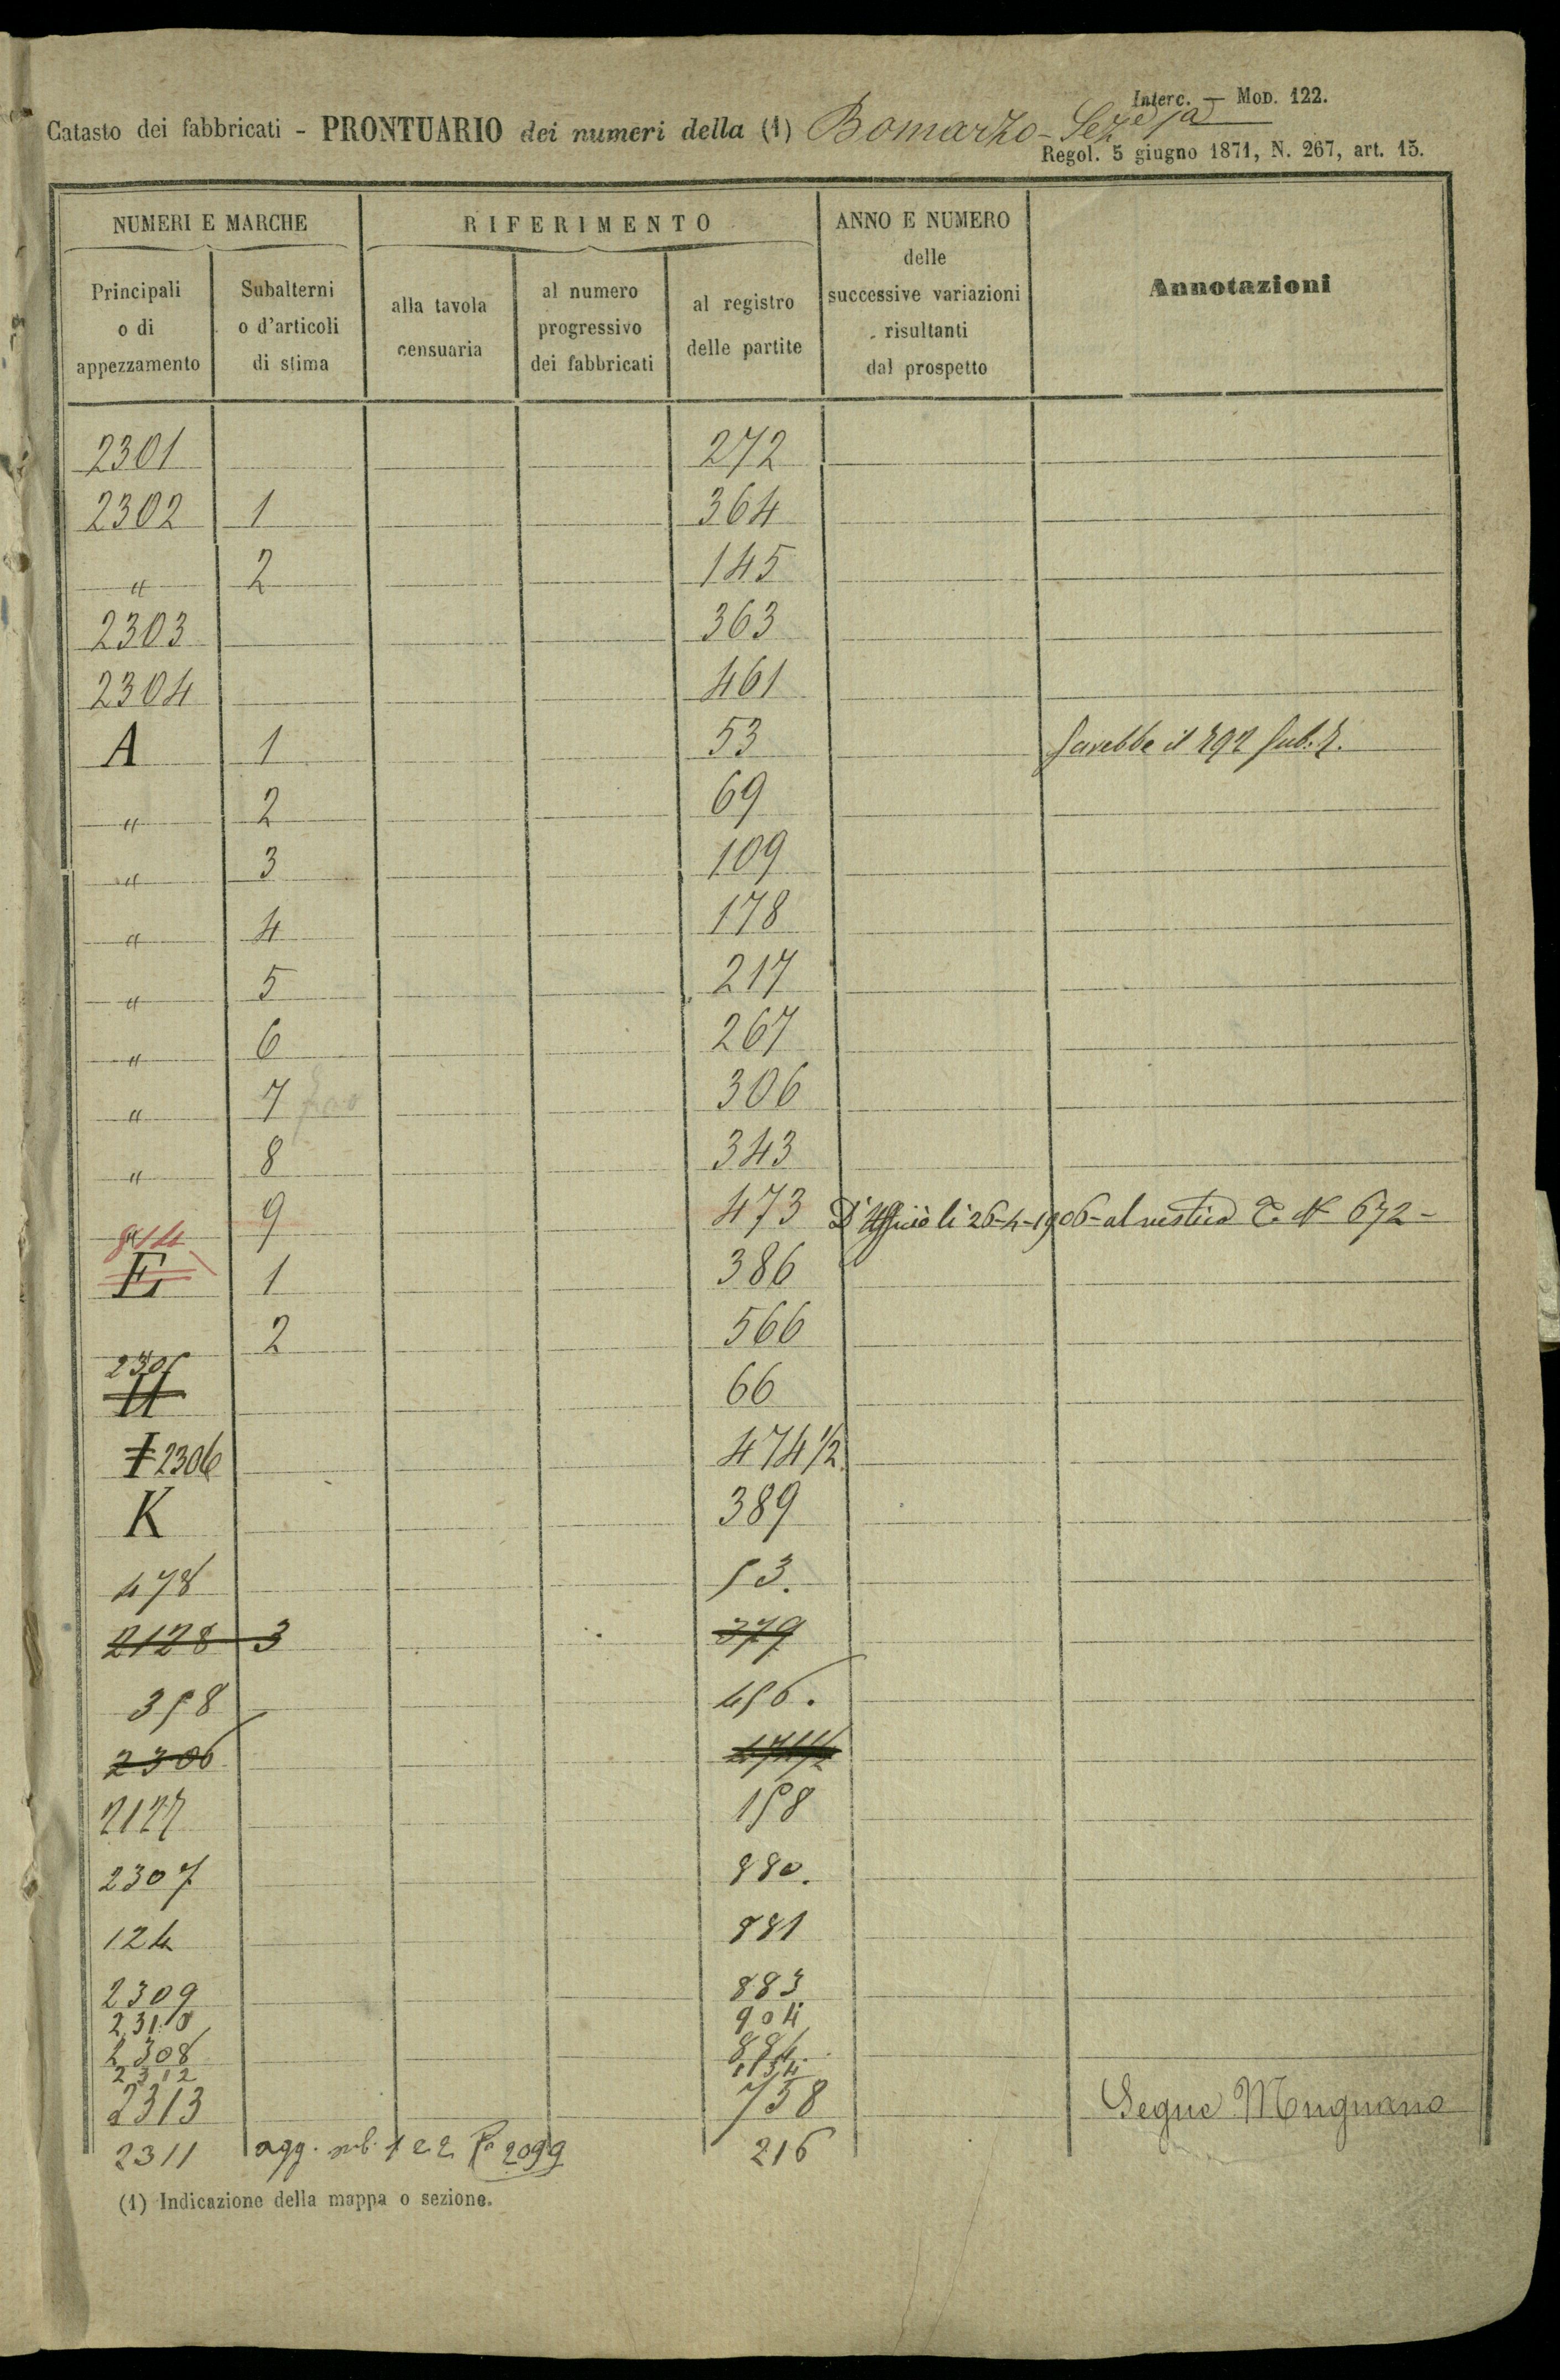 Interc. — Mod. 122.
Catasto dei fabbricati - PRONTUARIO dei numeri della (1) Bomarzo - Sez.e 1a
Regol. 5 giugno 1871, N. 267, art. 15.
NUMERI E MARCHE RIFERIMENTO ANNO E NUMERO delle successive variazioni risultanti dal prospetto Annotazioni
Principali o di appezzamento Subalterni o d'articoli di stima alla tavola censuaria al numero progressivo dei fabbricati al registro delle partite
2301 272
2302 1 364
" 2 145
2303 363
2304 461
A 1 53 Sarebbe il 292 Sub. 2.
" 2 69
" 3 109
" 4 178
" 5 217
" 6 267
" 7 306
" 8 343
" 9 473 D'Ufficio li 26-4-1906 - al rustico C. N 672 -
814
E 1 386
2 566
2305
H 66
I 2306 474 1/2
K 389
478 53.
2128 3 379
358 456.
2306 474 1/2
2127 158
2307 880.
124 881
2309 883
2310 904
2308 884.
2312 1134
2313 758 Segue Mugnano
2311 agg. sub. 1 e 2 2099 216
(1) Indicazione della mappa o sezione.